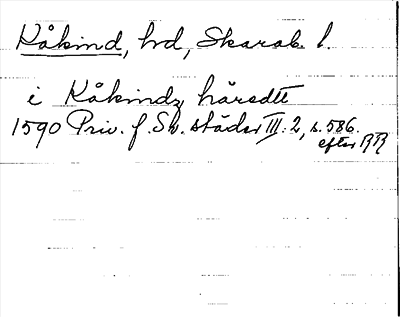 Kåkind, hd, Skarab. l.
i Kåkindz häredtt
1590 Priv. f. Sv. städer III: 2, s. 586.
efter RR